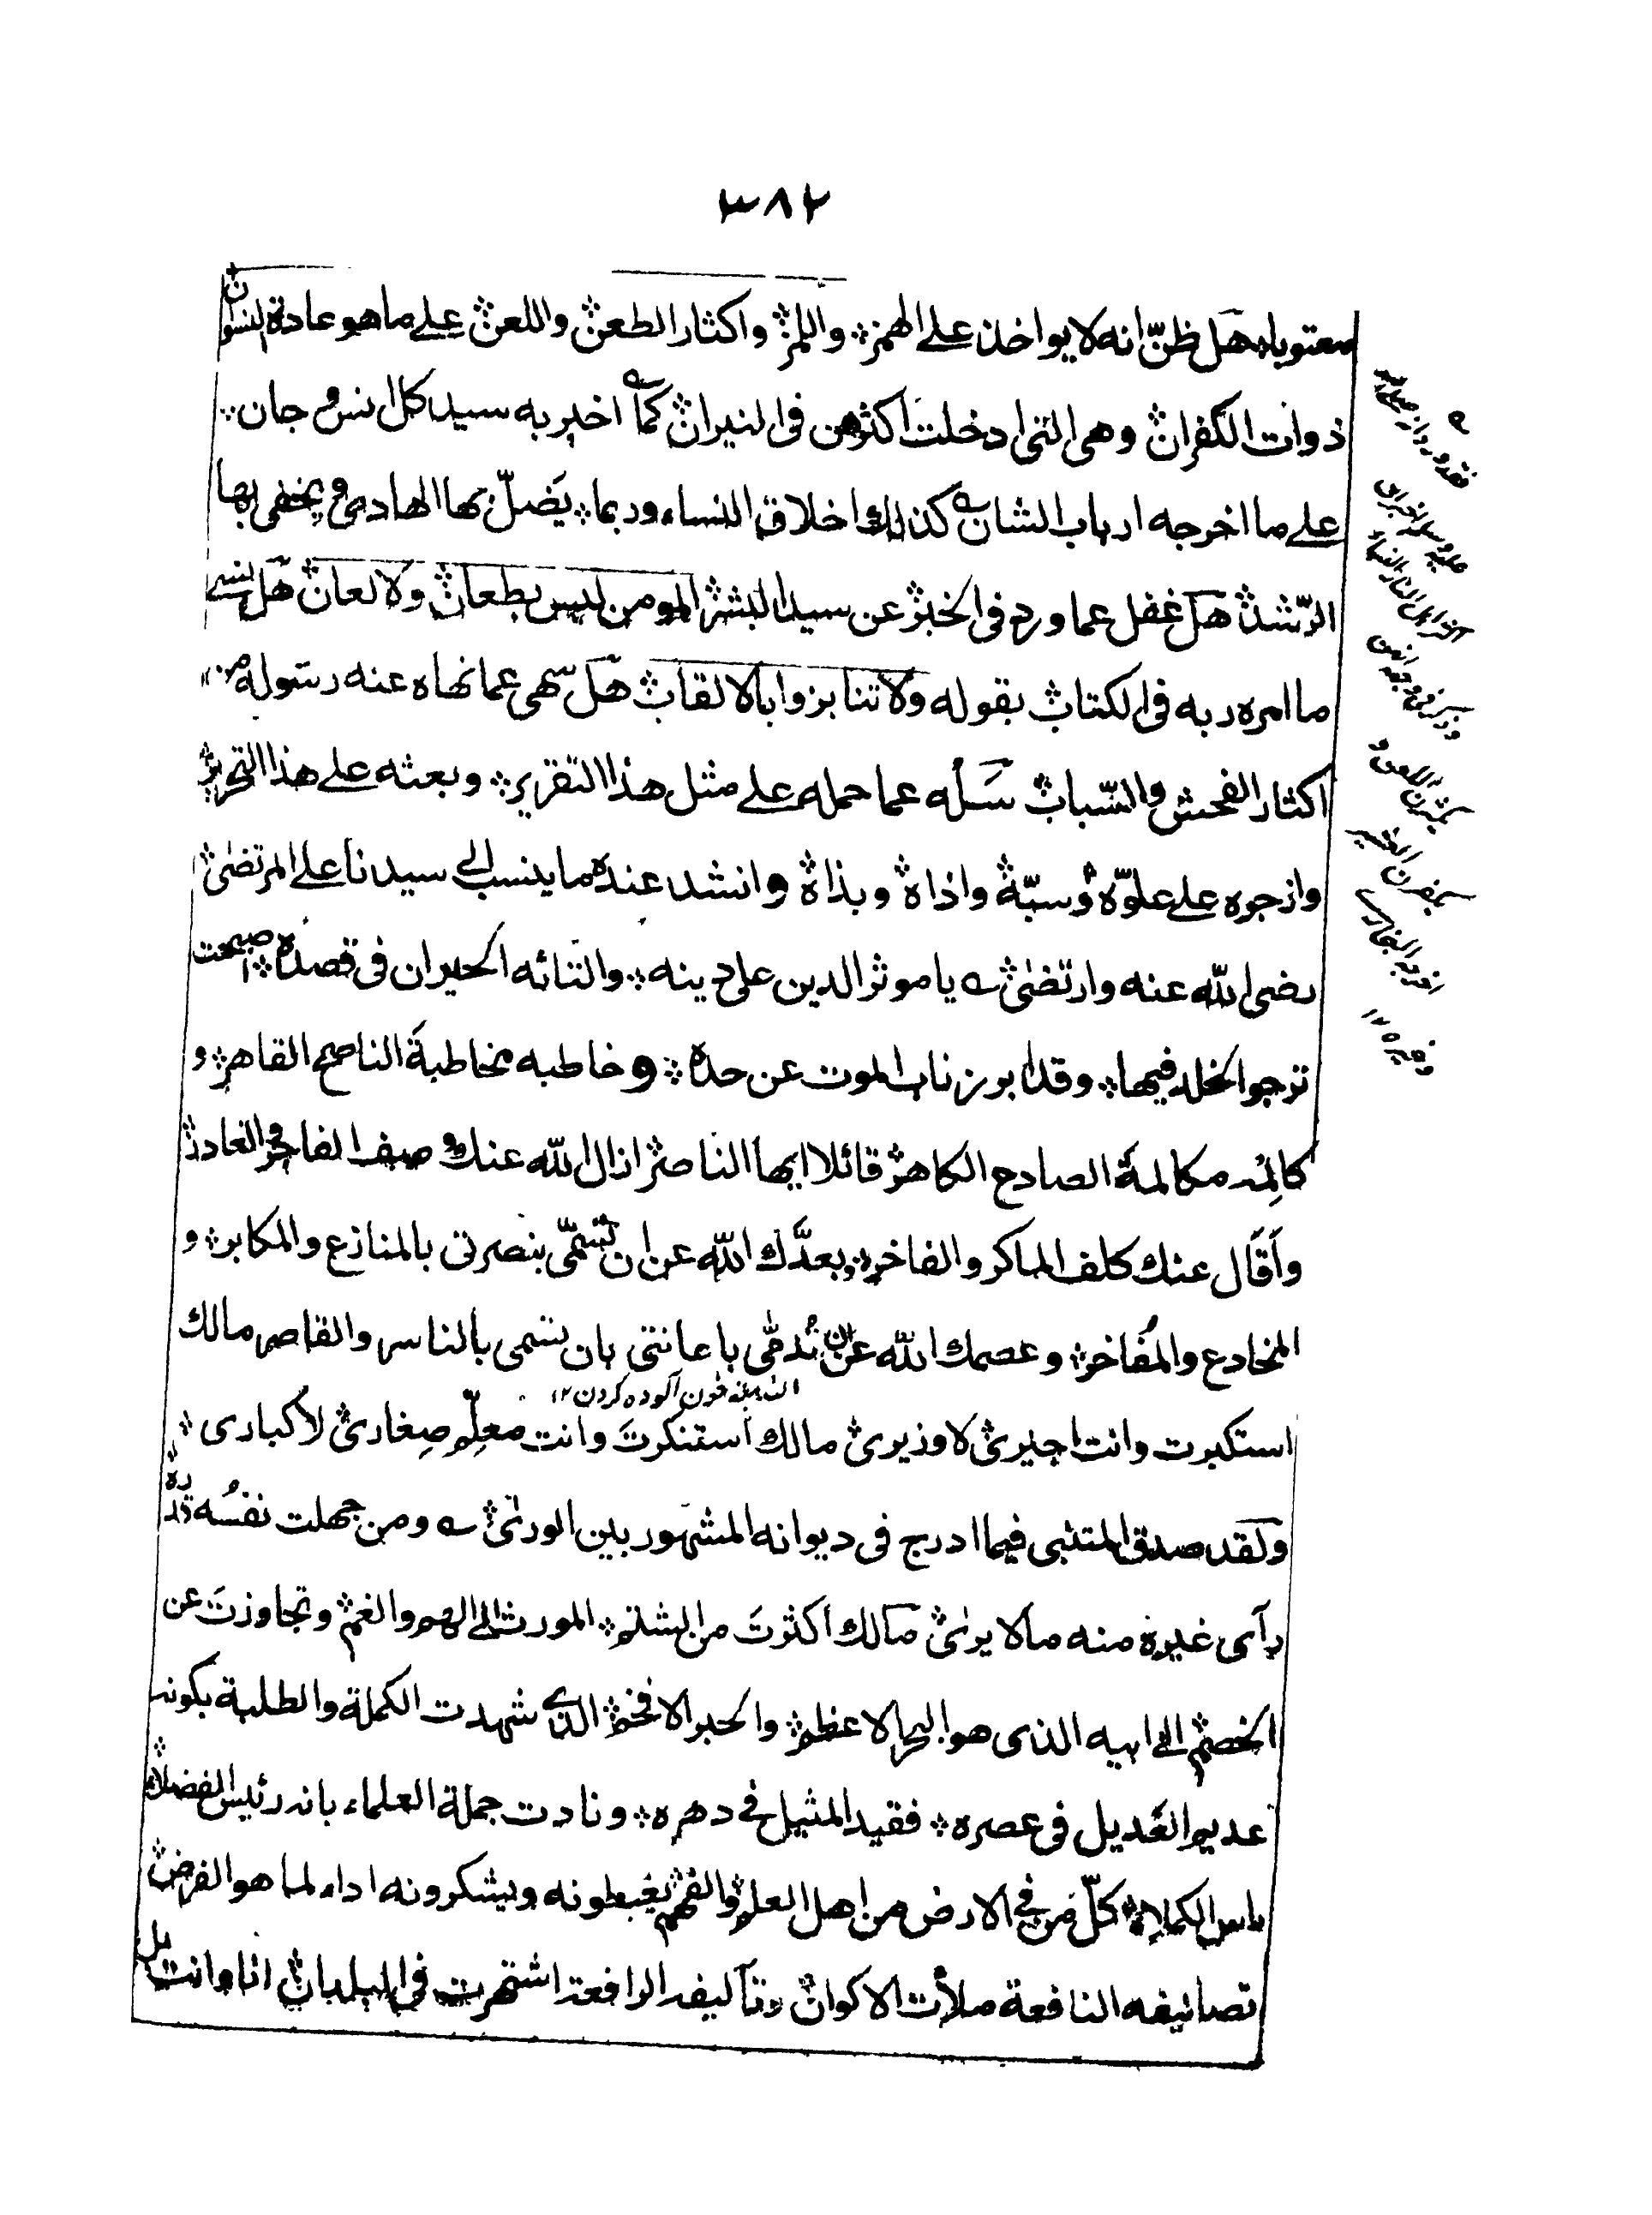 ٣٨٢
معتوباه هل ظنّ انه لا يواخذ على الهمز؞ واللمز؞ واكثار الطعن؞ واللعن؞ على ما هو عادة النسوان؞
ذوات الكفران؞ وهى التى ادخلت اكثرهن فى النيران؞ كما اخبر به سيد كل انس و جان؞
على ما اخرجه ارباب الشان كذلك اخلاق النساء وربما؞ يَضلّ بها الهادى ويخفى بها
الرّشد؞ هل غفل عما ورد فى الخبر؞ عن سيد البشر؞ المومن ليس بطعان؞ ولا لعان؞ هل نسى
ما امره ربه فى الكتاب؞ بقوله ولا تنابزوا بالالقاب؞ هل سهى عما نهاه عنه رسوله من
اكثار الفحش والسّباب؞ سَلْه عما حمله على مثل هذا التقرير؞ وبعثه على هذا التحرير؞
وازجره على علوّه وسبّه؞ واذاه؞ وبذاه؞ وانشد عنده ما ينسب الى سيدنا على المرتضىٰ؞
رضى الله عنه وارتضىٰ؞ يا موثر الدين على دينه؞ والتائه الحيران فى قصده؞ اصبحت
ترجوا الخلد فيها؞ وقد ابرز ناب الموت عن حده؞ وخاطبه مخاطبةَ الناصح القاهر؞ و
كالِمْه مكالمةَ الصادح الكاهر؞ قائلا ايها الناصر ازال الله عنك وصف الفاجر والغادر؞
وأقَال عنك كلف الماكر والفاخر؞ وبعدَّك الله عن ان تسمّى بنصرتى بالمنازع والمكابر؞ و
المخادع والمُفاخر؞ وعصمك الله عن ان تُدمّى باعانتى بان يسمى بالناسر والقاصر مالك
خون آلوده كردن ١٢
استكبرت وانت اجيرى؞ لا وزيرى؞ مالك استنكرتَ وانت معلِّم صِغارى؞ لا كبارى؞
ولقد صدق المتنبى فيما ادرج فى ديوانه المشهور بين الورىٰ؞ ومن جهلت نفسُه قدره؞
رآى غيره منه مالا يرىٰ؞ مالك اكثرتَ من الشتم؞ المورث الى الهم والغم؞ وتجاوزتَ عن
الخصم؞ الى ابيه الذى هو البحر الاعظم؞ والحبر الافخم؞ الذى شهدت الكملة والطلبة بكونه
عديم العَديل فى عصره؞ فقيد المثيل فى دهره؞ ونادت جملة العلماء بانه رئيس الفضلاء؞
راس الكملاء؞ كلّ مَن فى الارض من اهل العلم؞ والفهم؞ يغبطونه ويشكرونه اداء لما هو الفرض؞
تصانيفه النافعة ملأت الاكوان؞ وتآليفه الرافعة اشتهرت فى البلدان؞ انا وانت بل